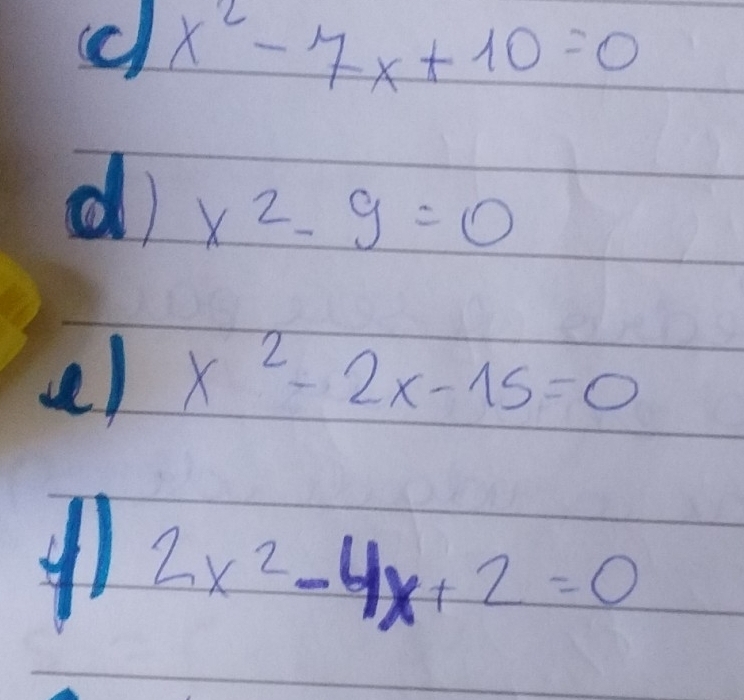 c) x² - 7x + 10 = 0
d) x² - 9 = 0
e) x² - 2x - 15 = 0
f) 2x² - 4x + 2 = 0